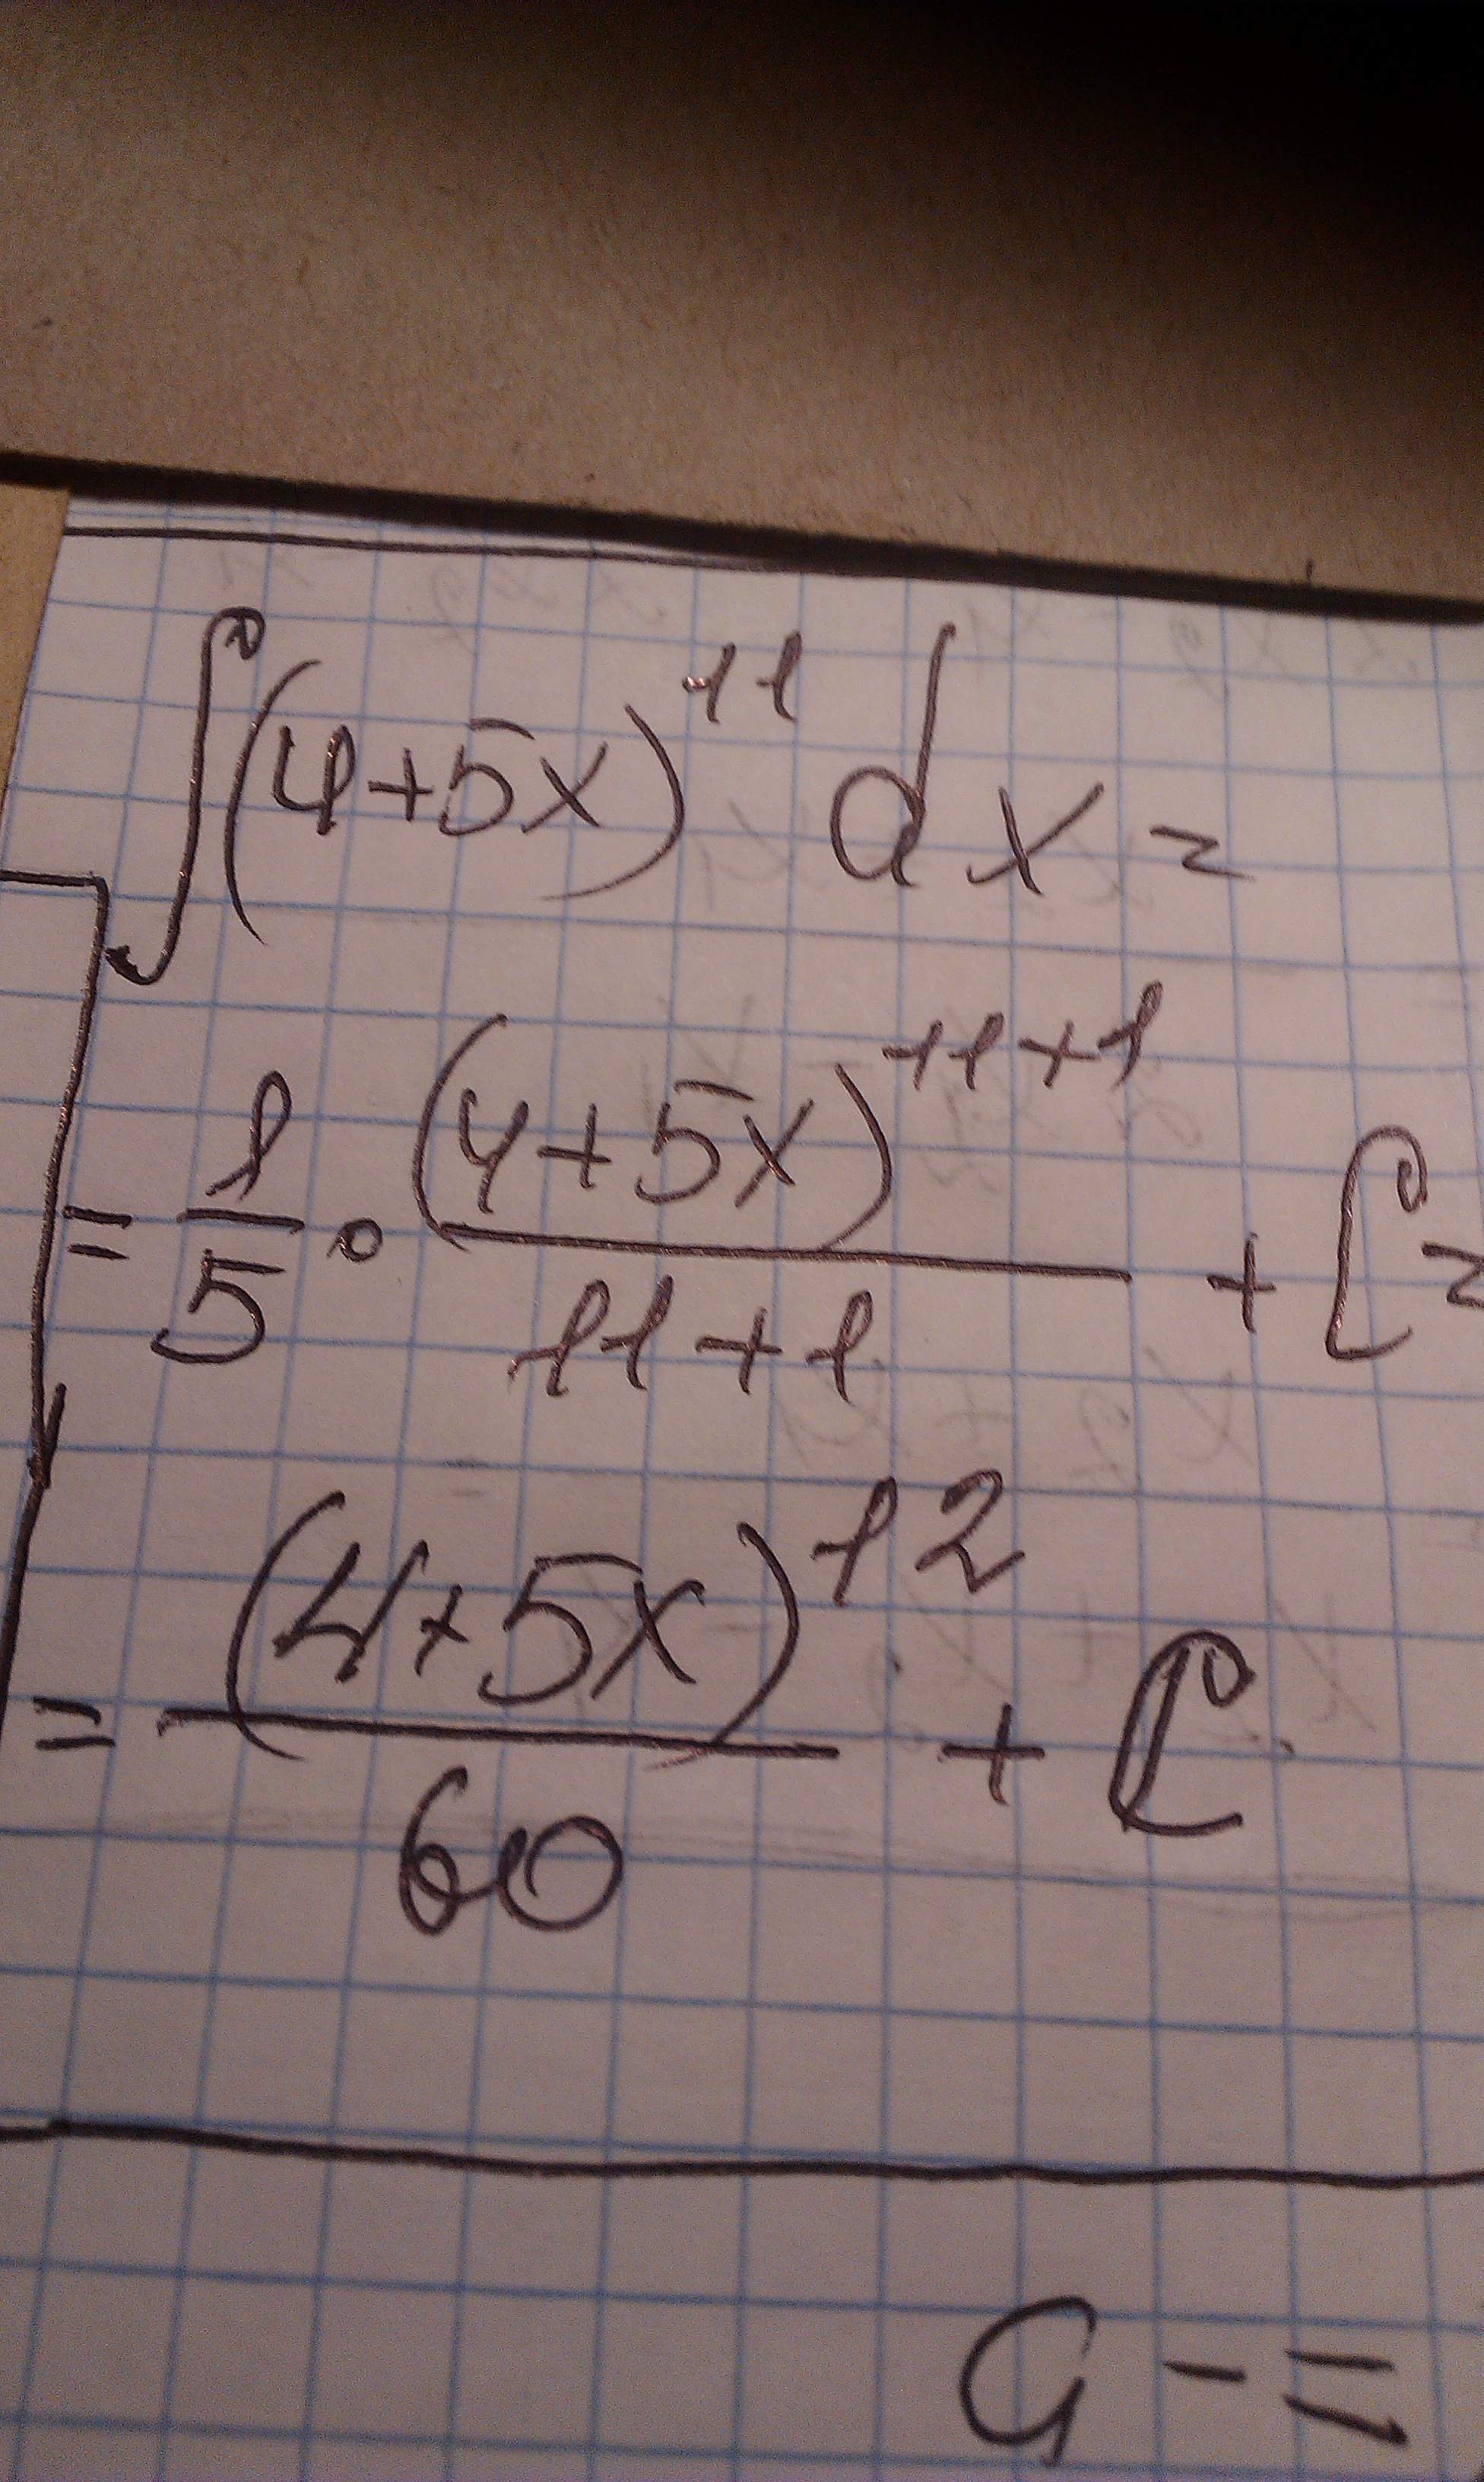 ∫(4+5x)^11 dx =
= 1/5 · (4+5x)^(11+1)/(11+1) + C =
= (4+5x)^12/60 + C